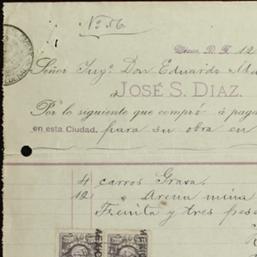 No. 56
Mexico, D. F. 12
Señor Ingo. Don Eduardo
á JOSÉ S. DIAZ.
Por lo siguiente que compró á paga
en esta Ciudad, para su obra en
4 carros Grava.
12 " Arena mina
Treinta y tres pes